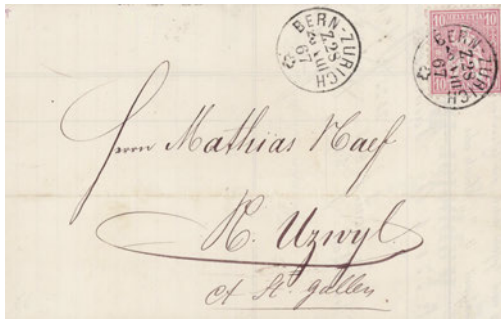 BERN-ZÜRICH
Z.28
2 VIII
67
10 HELVETIA 10
BERN-ZÜRICH
Z.28
2 VIII
67
10
Herrn Mathias Naef
N. Uzwyl.
Ct St. gallen.